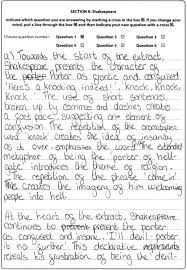 SECTION A: Shakespeare
Indicate which question you are answering by marking a cross in the box ☒. If you change your
mind, put a line through the box and then indicate your new question with a cross ☒.
Chosen question number: Question 1 Question 2 Question 3
Question 4 Question 5 Question 6
a) Towards the start of the extract,
Shakespeare presents the character of
the Porter as frantic and confused.
'Here's a knocking indeed! Knock, Knock,
Knock, Knock'. The use of short sentences
broken up by commas and dashes creates
a fast pace, suggesting an element
of confusion. The repetition of the onomatopoeic
word 'Knock' creates the idea of insanity
as it over-emphasises the word. The extended
metaphor of being the 'porter of hell-
gate' introduces the theme of religion.
The repetition of the phrase 'come in'
creates the imagery of him welcoming
people into hell.
At the heart of the extract, Shakespeare
continues to present the porter
as confused and insane. 'I'll devil-porter
it no further'. This declarative
reveals his frustration of being the 'devil